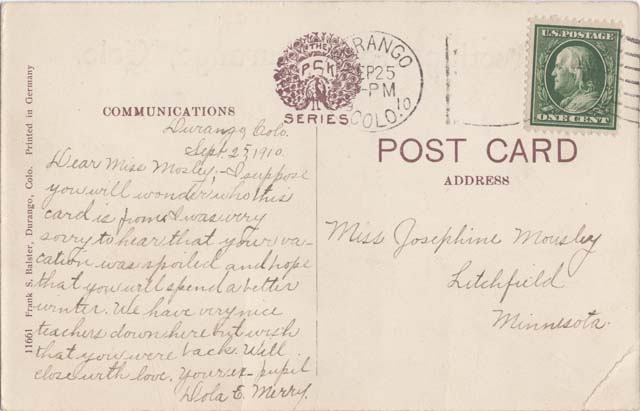 THE
P S K
SERIES
DURANGO
SEP 25
-PM
10
COLO.
U.S. POSTAGE
ONE CENT
COMMUNICATIONS
POST CARD
ADDRESS
11661 Frank S. Balster, Durango, Colo. Printed in Germany
Durango, Colo.
Sept. 25, 1910.
Dear Miss Mosley:- I suppose
you will wonder who this
card is from. I was very
sorry to hear that your va-
cation was spoiled and hope
that you will spend a better
winter. We have very nice
teachers down here but wish
that you were back. Will
close with love, your ex-pupil
Dola E. Merry.
Miss Josephine Mousley
Litchfield
Minnesota.